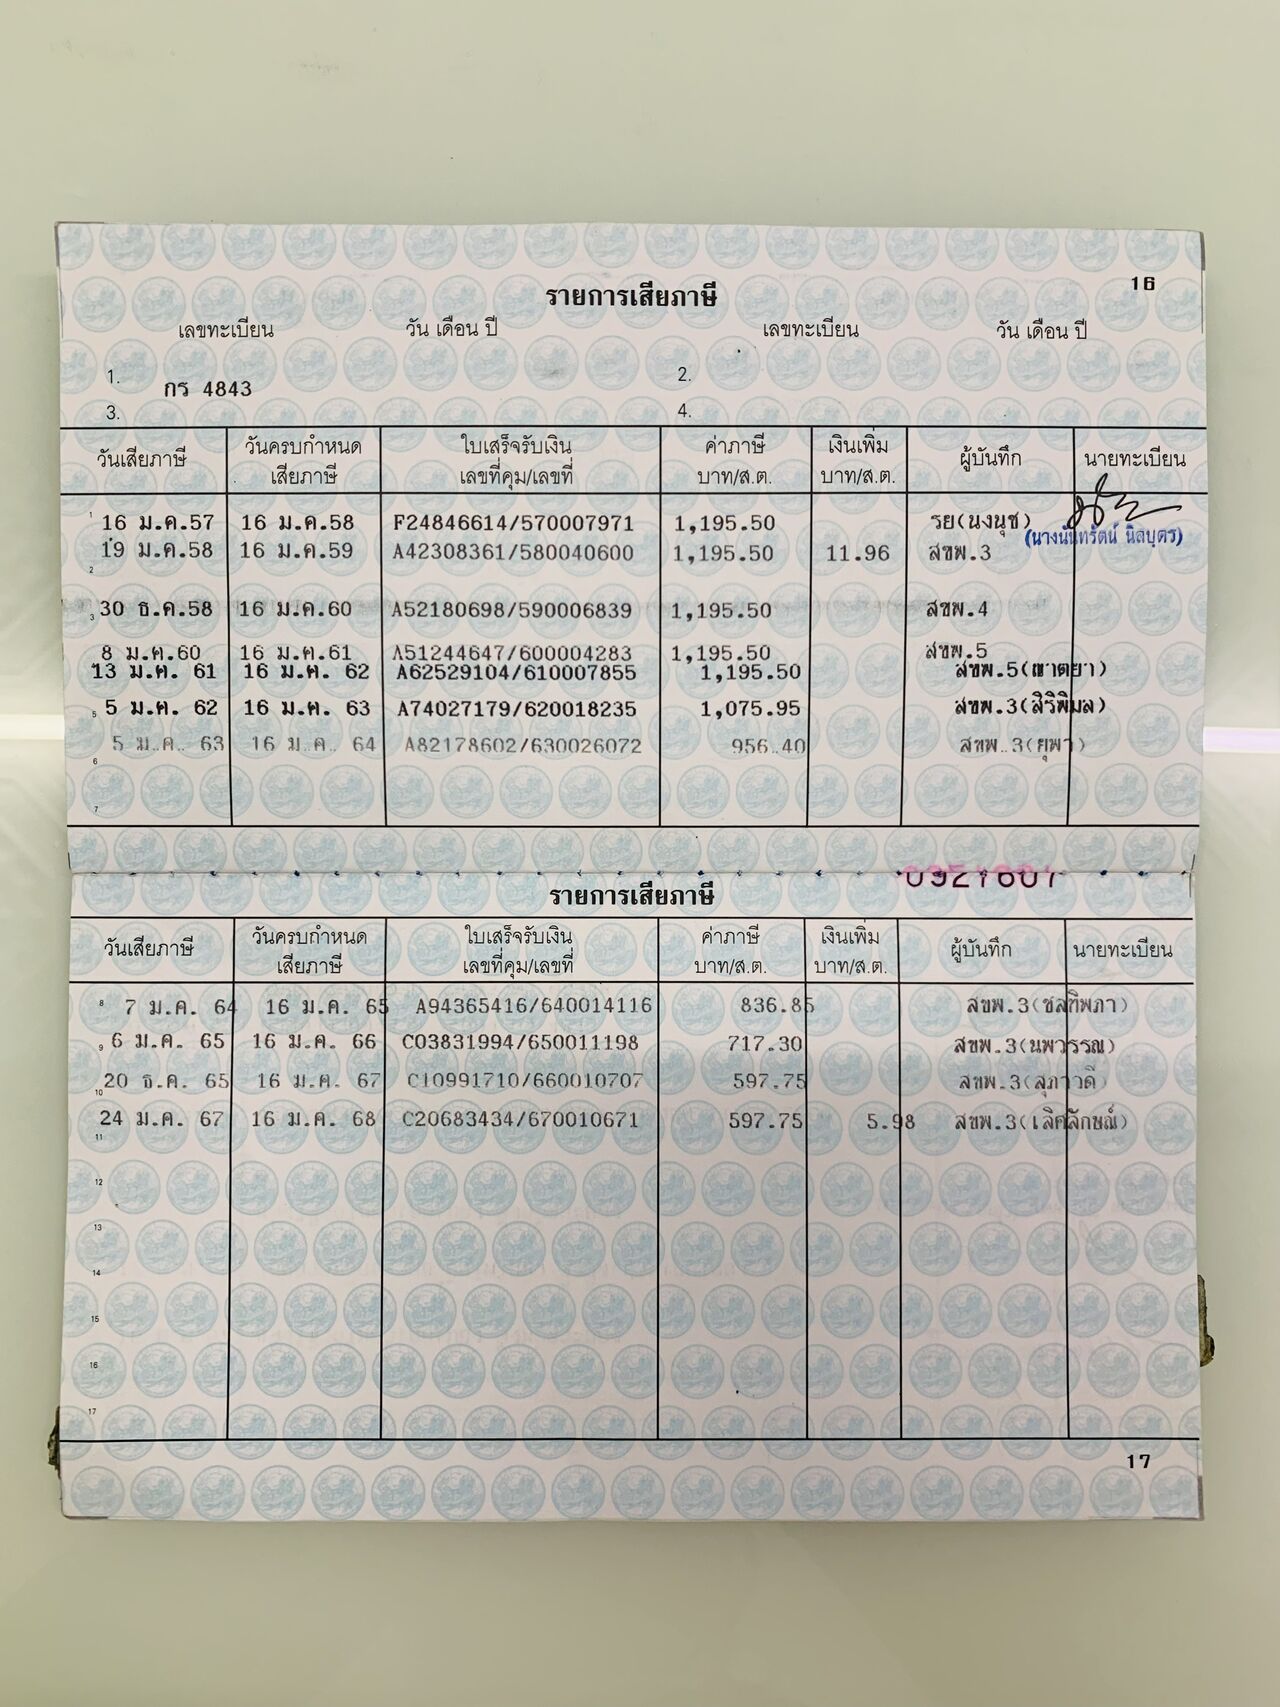 16
รายการเสียภาษี
เลขทะเบียน วัน เดือน ปี เลขทะเบียน วัน เดือน ปี
1. กร 4843 2.
3. 4.
วันเสียภาษี วันครบกำหนดเสียภาษี ใบเสร็จรับเงิน เลขที่คุม/เลขที่ ค่าภาษี บาท/ส.ต. เงินเพิ่ม บาท/ส.ต. ผู้บันทึก นายทะเบียน
1 16 ม.ค.57 16 ม.ค.58 F24846614/570007971 1,195.50 รย(นงนุช)
(นางนันทรัตน์ นิลบุตร)
19 ม.ค.58 16 ม.ค.59 A42308361/580040600 1,195.50 11.96 สขพ.3
2
3 30 ธ.ค.58 16 ม.ค.60 A52180698/590006839 1,195.50 สขพ.4
8 ม.ค.60 16 ม.ค.61 A51244647/600004283 1,195.50 สขพ.5
13 ม.ค. 61 16 ม.ค. 62 A62529104/610007855 1,195.50 สขพ.5(ชาตยา)
5 5 ม.ค. 62 16 ม.ค. 63 A74027179/620018235 1,075.95 สขพ.3(สิริพิมล)
5 ม.ค. 63 16 ม.ค. 64 A82178602/630026072 956.40 สขพ.3(ยุพา)
6
7
0921607
รายการเสียภาษี
วันเสียภาษี วันครบกำหนดเสียภาษี ใบเสร็จรับเงิน เลขที่คุม/เลขที่ ค่าภาษี บาท/ส.ต. เงินเพิ่ม บาท/ส.ต. ผู้บันทึก นายทะเบียน
8 7 ม.ค. 64 16 ม.ค. 65 A94365416/640014116 836.85 สขพ.3(ชลทิพภา)
9 6 ม.ค. 65 16 ม.ค. 66 C03831994/650011198 717.30 สขพ.3(นพวรรณ)
20 ธ.ค. 65 16 ม.ค. 67 C10991710/660010707 597.75 สขพ.3(สุภาวดี)
10
24 ม.ค. 67 16 ม.ค. 68 C20683434/670010671 597.75 5.98 สขพ.3(เลิศลักษณ์)
11
12
13
14
15
16
17
17